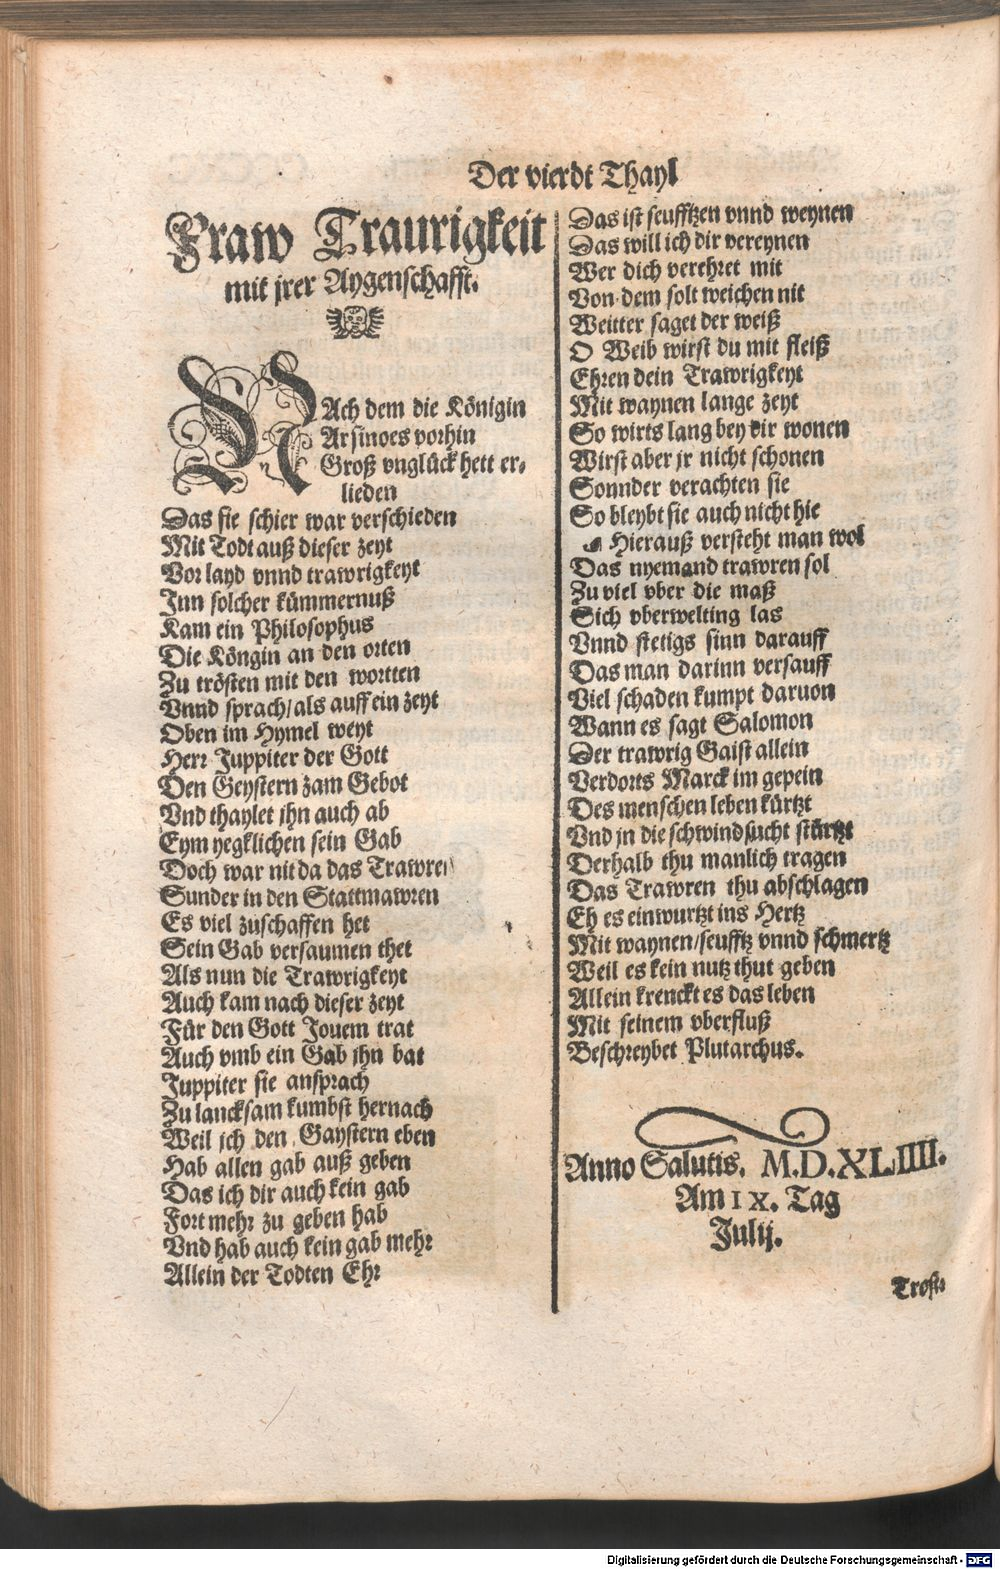 Der vierdt Thayl
Fraw Traurigkeit
mit jrer Aygenschafft.
NAch dem die Königin
Arsinoes vorhin
Groß vnglück hett er-
lieden
Das sie schier war verschieden
Mit Todt auß dieser zeyt
Vor layd vnnd trawrigkeyt
Inn solcher kümmernuß
Kam ein Philosophus
Die Köngin an den orten
Zu trösten mit den wortten
Vnnd sprach/als auff ein zeyt
Oben im Hymel weyt
Herr Juppiter der Gott
Den Geystern zam Gebot
Vnd thaylet jhn auch ab
Eym yegklichen sein Gab
Doch war nit da das Trawren
Sunder in den Stattmawren
Es viel zuschaffen het
Sein Gab versaumen thet
Als nun die Trawrigkeyt
Auch kam nach dieser zeyt
Für den Gott Jouem trat
Auch vmb ein Gab jhn bat
Juppiter sie ansprach
Zu lancksam kumbst hernach
Weil ich den Gaystern eben
Hab allen gab auß geben
Das ich dir auch kein gab
Fort mehr zu geben hab
Vnd hab auch kein gab mehr
Allein der Todten Ehr
Das ist seufftzen vnnd weynen
Das will ich dir vereynen
Wer dich verehret mit
Von dem solt weichen nit
Weitter saget der weiß
O Weib wirst du mit fleiß
Ehren dein Trawrigkeyt
Mit waynen lange zeyt
So wirts lang bey dir wonen
Wirst aber jr nicht schonen
Sonnder verachten sie
So bleybt sie auch nicht hie
Hierauß versteht man wol
Das nyemand trawren sol
Zu viel vber die maß
Sich vberwelting las
Vnnd stetigs sinn darauff
Das man darinn versauff
Viel schaden kumpt daruon
Wann es sagt Salomon
Der trawrig Gaist allein
Verdorts Marck im gepein
Des menschen leben kürtzt
Vnd jn die schwindsucht stürtzt
Derhalb thu manlich tragen
Das Trawren thu abschlagen
Eh es einwurtzt ins Hertz
Mit waynen/seufftz vnnd schmertz
Weil es kein nutz thut geben
Allein krenckt es das leben
Mit seinem vberfluß
Beschreybet Plutarchus.
Anno Salutis. M.D.XLIIII.
Am IX. Tag
Julij.
Trost
Digitalisierung gefördert durch die Deutsche Forschungsgemeinschaft - DFG